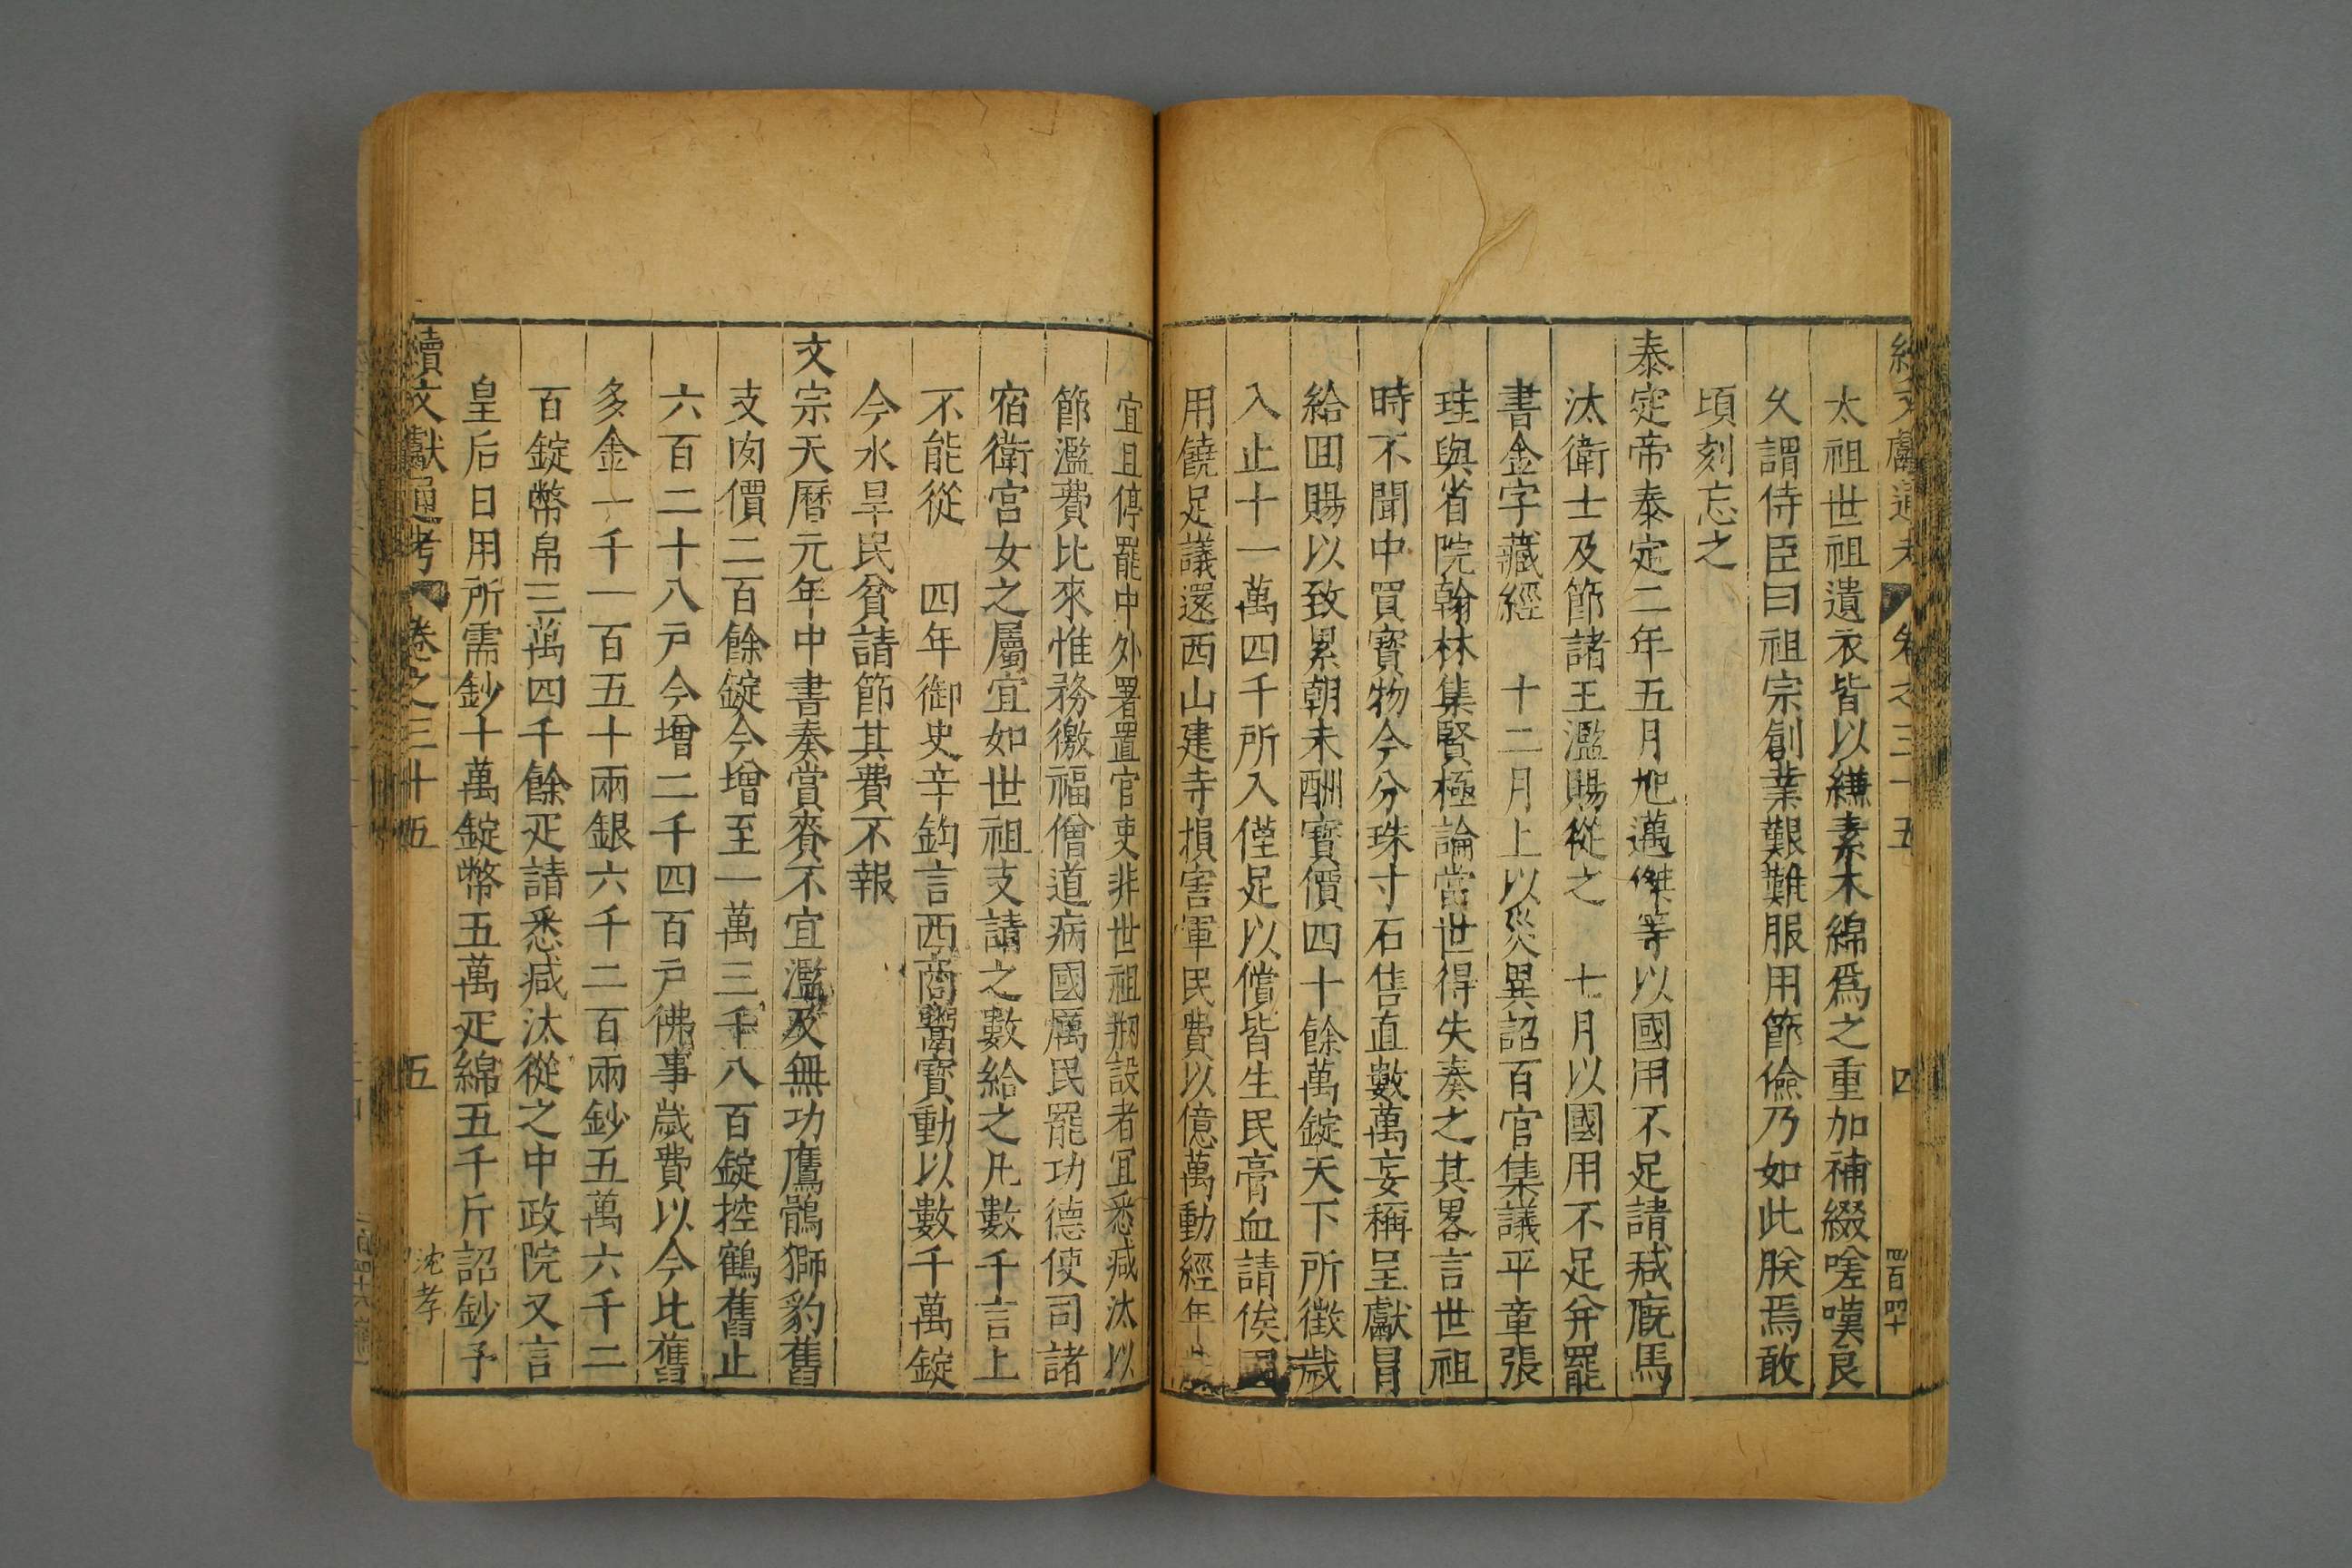 續文獻通考 卷之三十五 四
太祖世祖遺衣皆以縑素木綿爲之重加補綴嗟嘆良
久謂侍臣曰祖宗創業艱難服用節儉乃如此朕焉敢
頃刻忘之
泰定帝泰定二年五月旭邁傑等以國用不足請減廐馬
汰衛士及節諸王濫賜從之 七月以國用不足并罷
書金字藏經 十二月上以災異詔百官集議平章張
珪與省院翰林集賢極論當世得失奏之其畧言世祖
時不聞中買寶物今分珠寸石售直數萬妄稱呈獻冒
給回賜以致累朝未酬寶價四十餘萬錠天下所徵歲
入止十一萬四千所入僅足以償皆生民膏血請俟國
用饒足議還西山建寺損害軍民費以億萬動經年歲
宜且停罷中外署置官吏非世祖剏設者宜悉减汰以
節濫費比來惟務徼福僧道病國厲民罷功德使司諸
宿衛宮女之屬宜如世祖支請之數給之凡數千言上
不能從 四年御史辛鈞言西商鬻寶動以數千萬錠
今水旱民貧請節其費不報
文宗天曆元年中書奏賞賚不宜濫及無功鷹鶻獅豹舊
支肉價二百餘錠今增至一萬三千八百錠控鶴舊止
六百二十八戶今增二千四百戶佛事歲費以今比舊
多金一千一百五十兩銀六千二百兩鈔五萬六千二
百錠幣帛三萬四千餘疋請悉减汰從之中政院又言
皇后日用所需鈔十萬錠幣五萬疋綿五千斤詔鈔予
續文獻通考 卷之三十五 五 沈孝